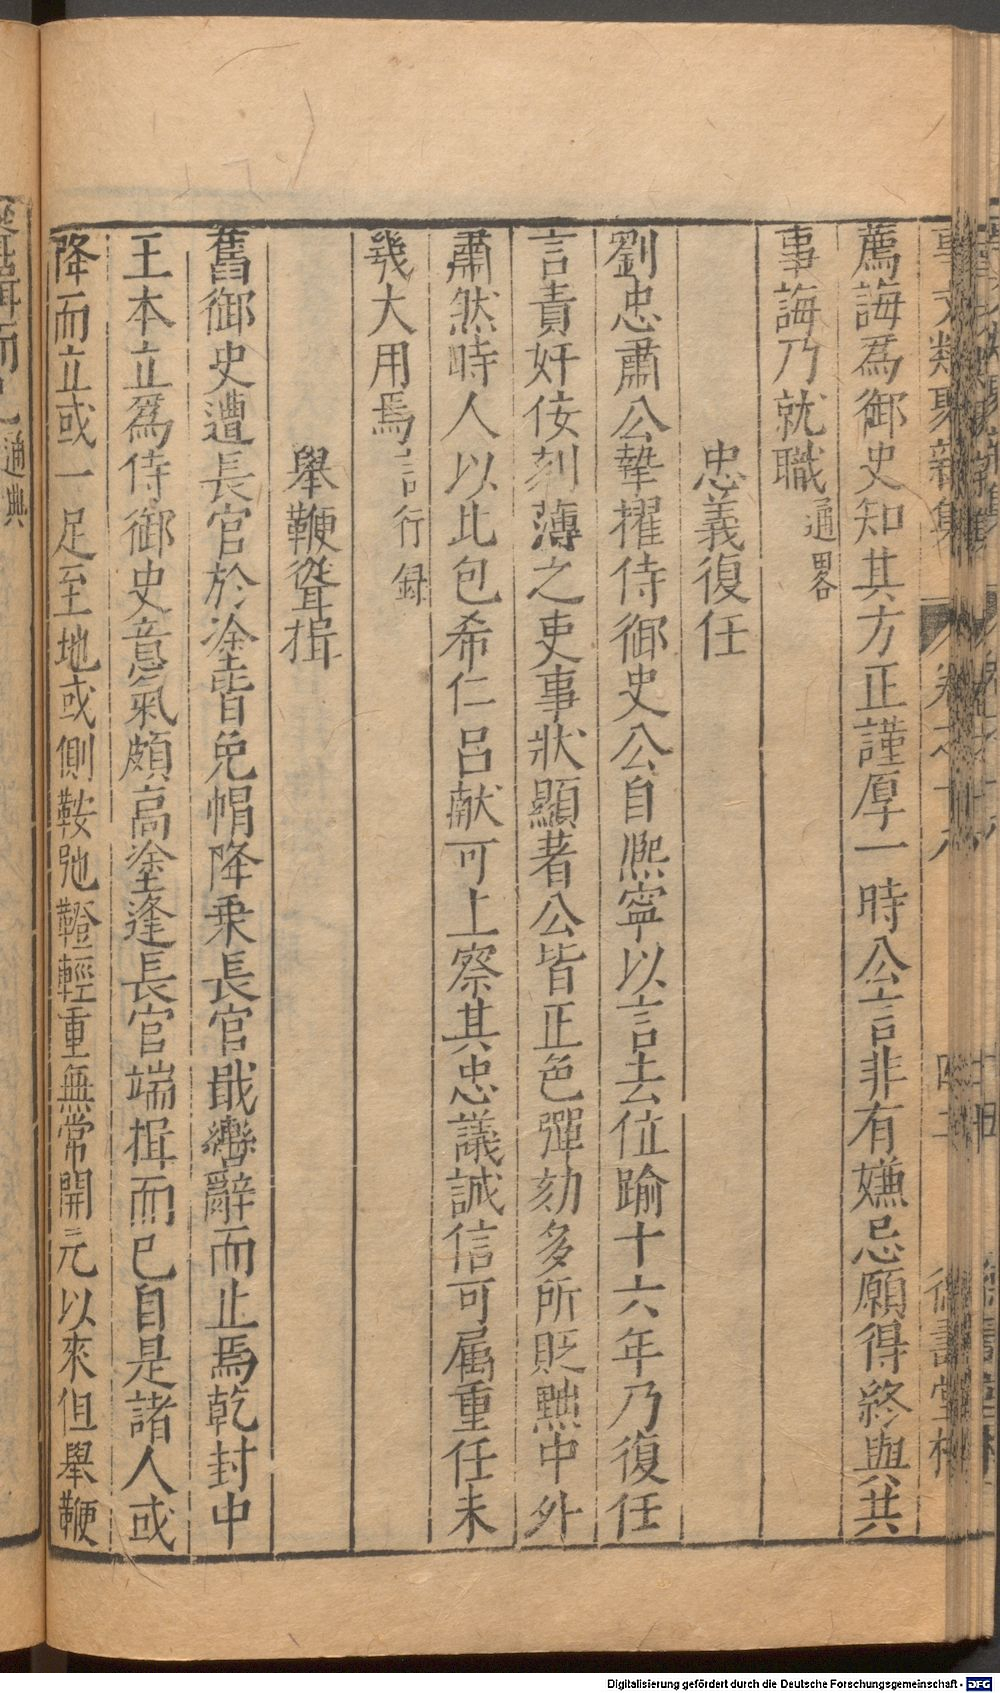 事文類聚新集　卷之十九　四十　德壽堂梓
薦誨爲御史知其方正謹厚一時公言非有嫌忌願得終與共
事誨乃就職通畧
忠義復任
劉忠肅公摯擢侍御史公自熈寧以言去位踰十六年乃復任
言責奸佞刻薄之吏事狀顯著公皆正色彈劾多所貶黜中外
肅然時人以此包希仁呂献可上察其忠議誠信可属重任未
㡬大用焉言行録
舉鞭聳揖
舊御史遭長官於塗皆免帽降乗長官戢轡辭而止焉乾封中
王本立爲侍御史意氣頗高塗逢長官端揖而已自是諸人或
降而立或一足至地或側鞍弛鞾輕重無常開元以來但舉鞭
聳揖而已通典
Digitalisierung gefördert durch die Deutsche Forschungsgemeinschaft - DFG